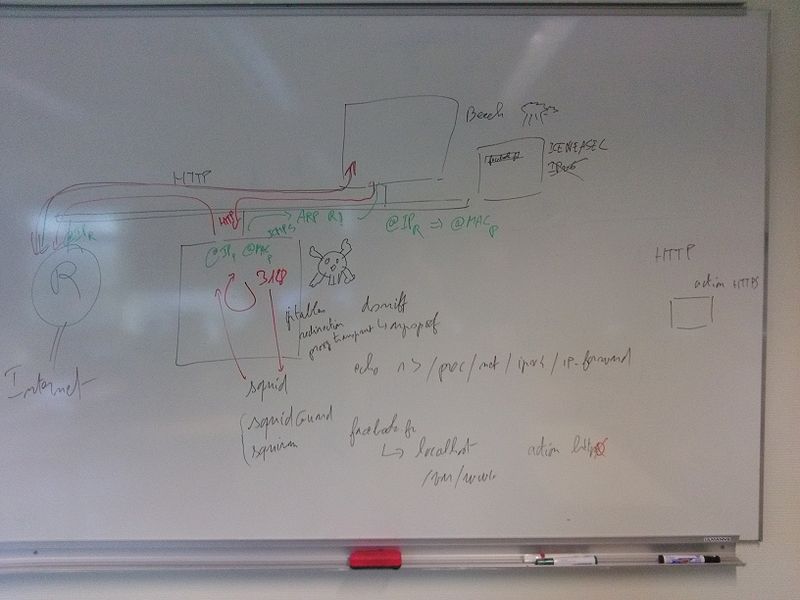 Beech
ICEWEASEL
HTTP
HTTP
ARP
@IP_R => @MAC_P
@IP_R
@IP_P @MAC_P
R
3128
HTTP
action HTTPS
iptables
dsniff
redirection
proxy transparent ↳ arpspoof
Internet
echo 1 > /proc/net/ipv4/ip_forward
squid
squidGuard
squirm
facebook.fr
↳ localhost
action http
/var/www